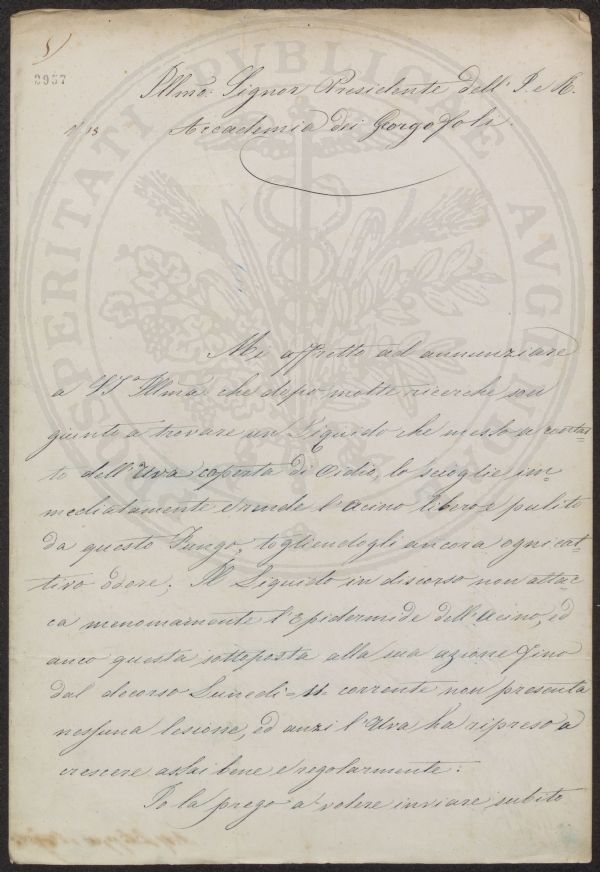 5)
2957
Illmo: Signor Presidente dell' I. e R.
Accademia dei Georgofili.
PROSPERITATI PUBLICAE AUGENDAE
Mi affretto ad annunziare
a V.S.a Illma che dopo molte ricerche son
giunto a trovare un Liquido che messo a contat-
to dell'Uva coperta di Oidio, lo scioglie im-
mediatamente e rende l'acino libero e pulito
da questo Fungo, togliendogli ancora ogni cat-
tivo odore; Il Liquido in discorso non attac-
ca menomamente l'Epidermide dell'acino, ed
anco questa sottoposta alla sua azione fino
dal decorso Lunedì = 11 = corrente non presenta
nessuna lesione, ed anzi l'Uva ha ripreso a
crescere assai bene e regolarmente:
Io la prego a volere inviare subito